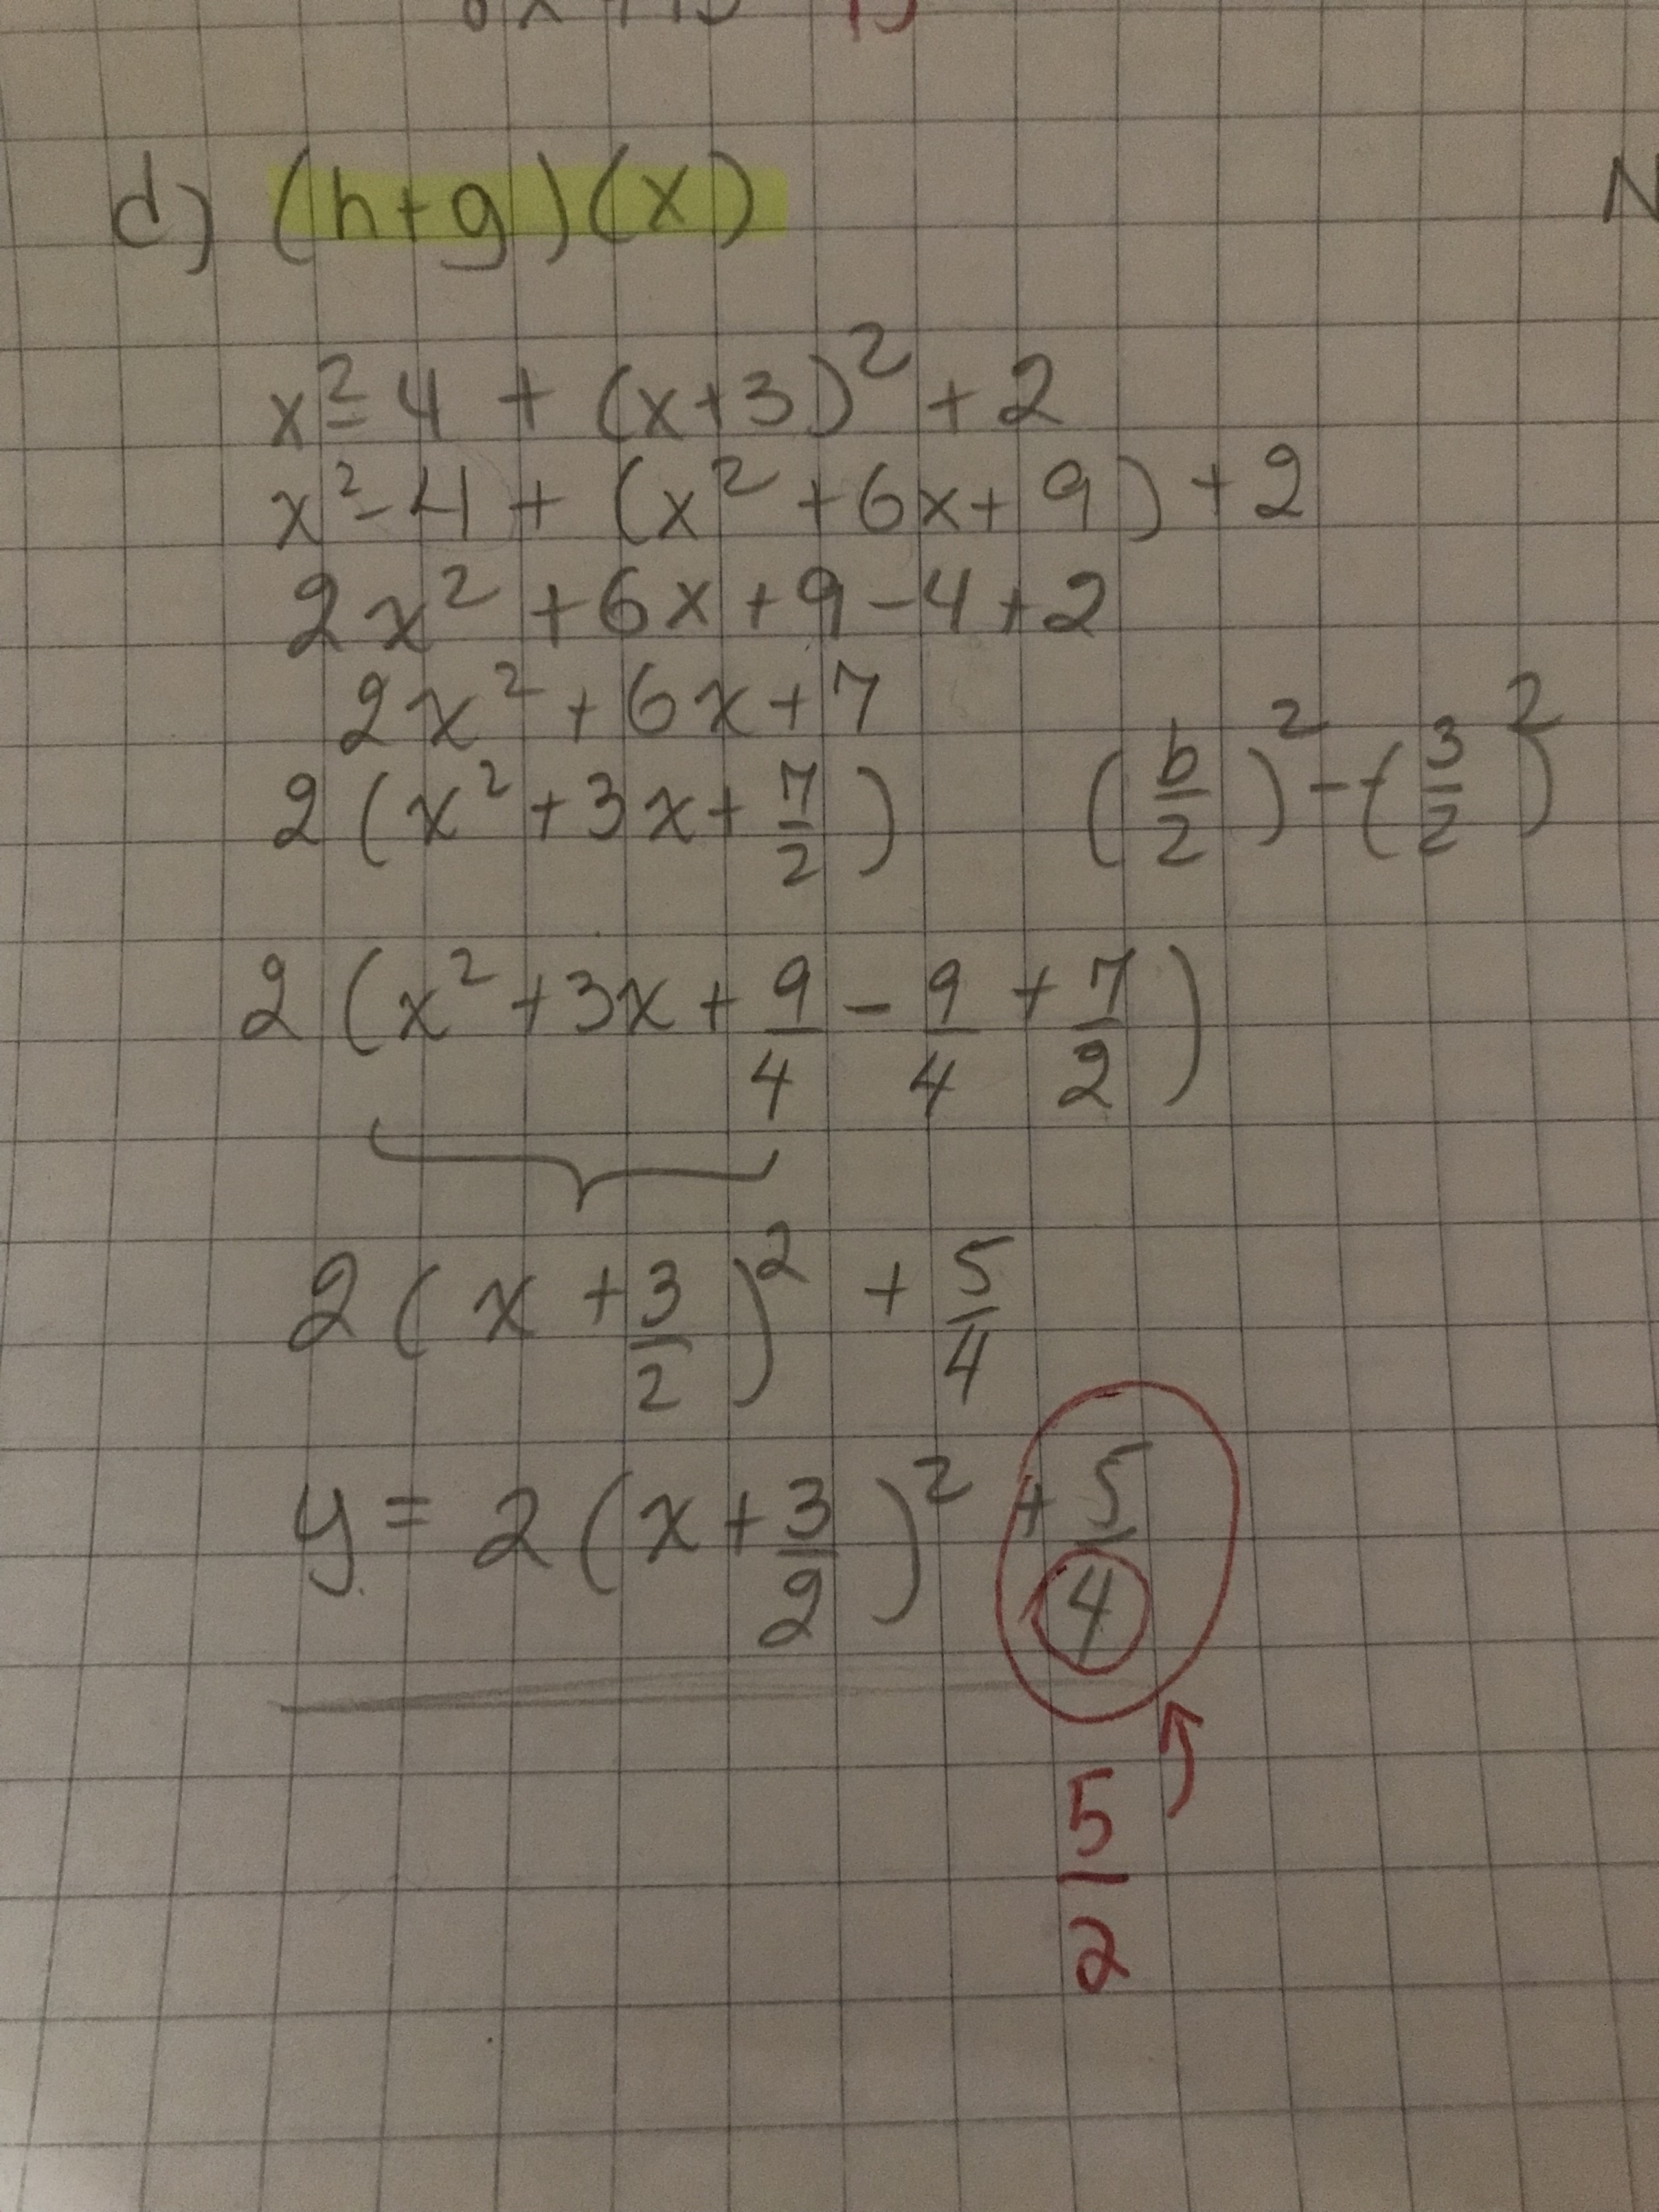 d) (h+g)(x)
x²-4 + (x+3)² +2
x²-4 + (x² +6x+9) +2
2x² +6x+9-4+2
2x² +6x+7
2(x²+3x+7/2) (b/2)² - (3/2)²
2(x²+3x+9/4-9/4+7/2)
2(x+3/2)² + 5/4
y = 2(x+3/2)² + 5/4
5/2